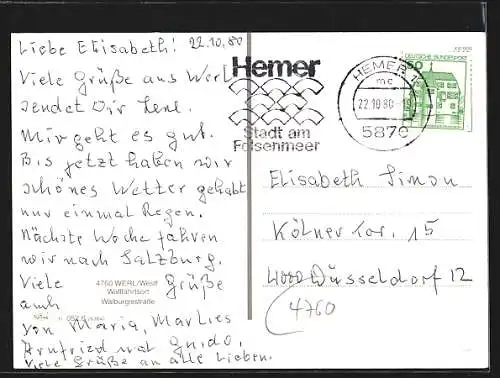 Liebe Elisabeth! 22.10.80
Viele Grüße aus Werl
sendet Dir Lene.
Mir geht es gut.
Bis jetzt haben wir
schönes Wetter gehabt
nur einmal Regen.
Nächste Woche fahren
wir nach Salzburg.
Viele Grüße
auch
von Maria, Marlies
Arnfried und Guido.
Viele Grüße an alle Lieben.
4760 WERL/Westf
Wallfahrtsort
Walburgisstraße
Hemer
Stadt am
Felsenmeer
HEMER 1
mc
22.10.80-19
5870
50
DEUTSCHE BUNDESPOST
Elisabeth Simon
Kölner Tor. 15
4000 Düsseldorf 12
4760